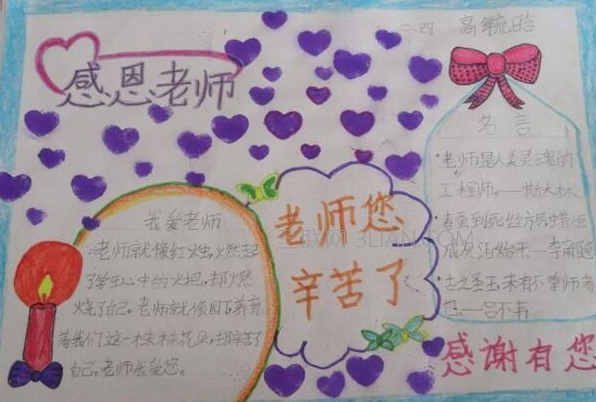 二四
感恩老师
名言
老师是人类灵魂的
工程师。——斯大林
春蚕到死丝方尽,蜡炬
成灰泪始干——李商隐
古之圣王,未有不尊师者
也。——吕不韦
我爱老师
老师就像红烛,燃起
了学生心中的火把,却燃
烧了自己。老师就像园丁,养育
着我们这一株株花朵,却辛苦了
自己。老师我爱您。
老师您
辛苦了
3LIAN.COM
感谢有您